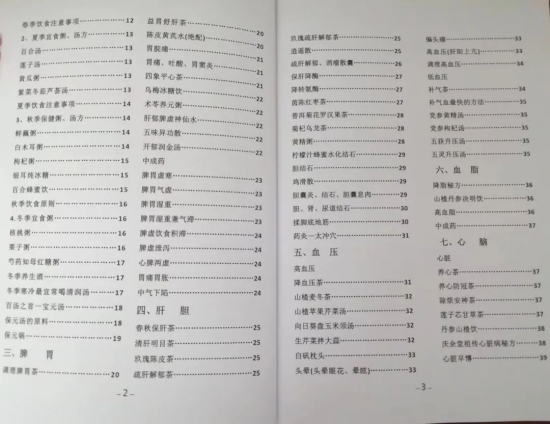 春季饮食注意事项 12
3、夏季宜食粥、汤方 13
百合汤 13
莲子汤 13
黄瓜粥 13
紫菜冬葫芦茶汤 13
夏季饮食注意事项 14
3、秋季保健粥、汤方 14
鲜藕粥 14
白木耳粥 14
枸杞粥 14
银耳炖冰糖 15
百合蜂蜜饮 15
秋季饮食原则 15
4.冬季宜食粥 16
核桃粥 16
栗子粥 16
芍药知母红糖粥 17
冬季养生酒 17
冬季寒冷最宜常喝清润汤 17
百汤之首一宝元汤 18
保元汤的原料 18
保元粥 19
三、脾 胃
调理脾胃茶 20
益胃舒肝茶 20
陈皮黄芪水(绝配) 20
胃脘痛 21
胃痛、吐酸、胃窦炎 21
四象平心茶 21
乌梅冰糖饮 21
术苓养元粥 21
肝郁脾虚神仙水 22
五味异功散 22
开郁润金汤 22
中成药
脾胃虚寒 23
脾胃气虚 23
脾胃湿重 23
脾胃湿重兼气滞 23
脾虚饮食积滞 24
脾虚泄泻 24
心脾两虚 24
胃痛胃胀 24
中气下陷 24
四、肝 胆
春秋保肝茶 25
清肝明目茶 25
玫瑰陈皮茶 25
疏肝解郁茶 25
－2－
玫瑰疏肝解郁茶 25
逍遥散 25
疏肝解郁、消瘤散囊 26
保肝降酶 26
降转氨酶 26
茵陈红枣茶 26
普洱菊花罗汉果茶 26
菊杞乌龙茶 27
黄精粥 27
柠檬汁蜂蜜水化结石 28
胆结石 28
鸡滑散 28
胆囊炎、结石、胆囊息肉 29
胆、肾、尿道结石 29
揉脚底地筋 29
药灸一太冲穴 31
五、血 压
高血压
降血压茶 31
山楂麦冬茶 31
山楂苹果芹菜汤 32
向日葵盘玉米须汤 32
生芹菜拌大蒜 32
白矾枕头 33
头晕(头晕眼花、晕眩) 33
－3－
偏头痛 33
高血压(肝阳上亢) 33
调理高血压 34
低血压
补气茶 34
补气血最快的方法 34
党参黄精汤 34
党参枸杞汤 34
五跌升压汤 35
五灵升压汤 35
六、血 脂
降脂秘方 36
山楂丹参决明饮 36
高血脂 36
中成药 37
七、心 脑
心脏
养心茶 37
养心防冠茶 37
除烦安神茶 37
莲子芯甘草茶 37
丹参山楂饮 37
庆余堂祖传心脏病秘方 38
心脏早博 39